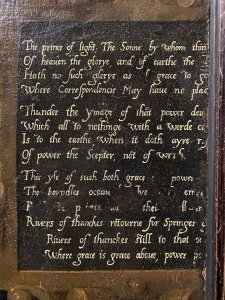 The prince of light. The Sonne by whom thin
Of heaven the glorye and of earthe the
Hath no such glorye as grace to g
Where Correspondencie May have no plac
Thunder the ymage of that power dev
Which all to nothinge with a worde c
Is to the earthe when it doth ayre r
Of power the Scepter, not of wra
This yle of such both grace power
The boundles ocean
P
Rivers of thanckes retourne for Springes
Rivers of thanckes still to that o
Where grace is grace above, power po